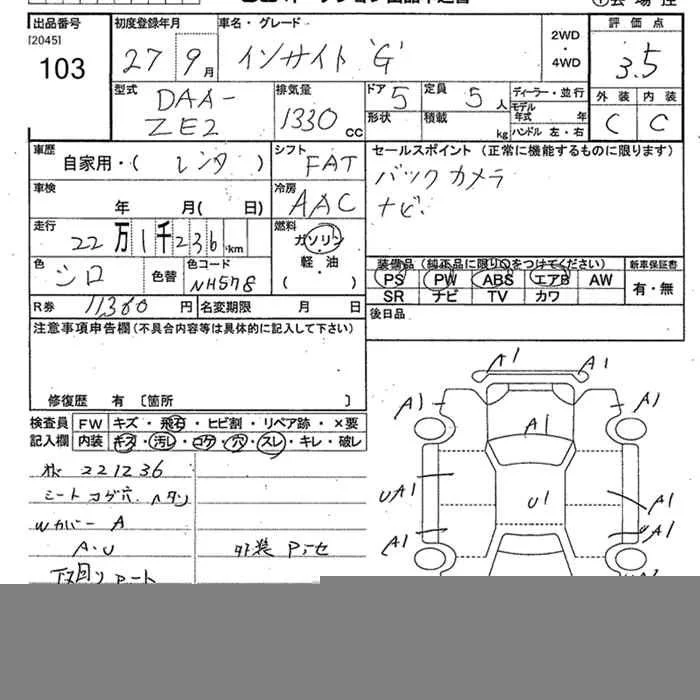 出品番号 初度登録年月 車名・グレード 評価点
[2045] 103 27 9月 インサイト 'G' 2WD・4WD 3.5
型式 DAA-ZE2 排気量 1330 cc ドア 5 定員 5人 ディーラー・並行
形状 積載 kg モデル年式 年 ハンドル 左・右
外装 内装
C C
車歴 自家用・( レンタ ) シフト FAT セールスポイント (正常に機能するものに限ります)
バックカメラ
ナビ
車検 年 月( 日) 冷房 AAC
走行 22万1千236km 燃料 ガソリン 軽・油
色 シロ 色替 色コード NH578
装備品 (純正品に限り○をつけてください) 新車保証書
PS PW ABS エアB AW 有・無
SR ナビ TV カワ
R券 11,360 円 名変期限 月 日 後日品
注意事項申告欄 (不具合内容等は具体的に記入して下さい)
修復歴 有 〔箇所 〕
検査員 FW キズ・飛石・ヒビ割・リペア跡・×要
記入欄 内装 キズ・汚レ・コゲ・穴・スレ・キレ・破レ
221236
シートコゲ穴 ヘタリ
Wカバー A
A・U 外装
A1 A1
A1 A1
A1
UA1 U1 A1
A1 UA1